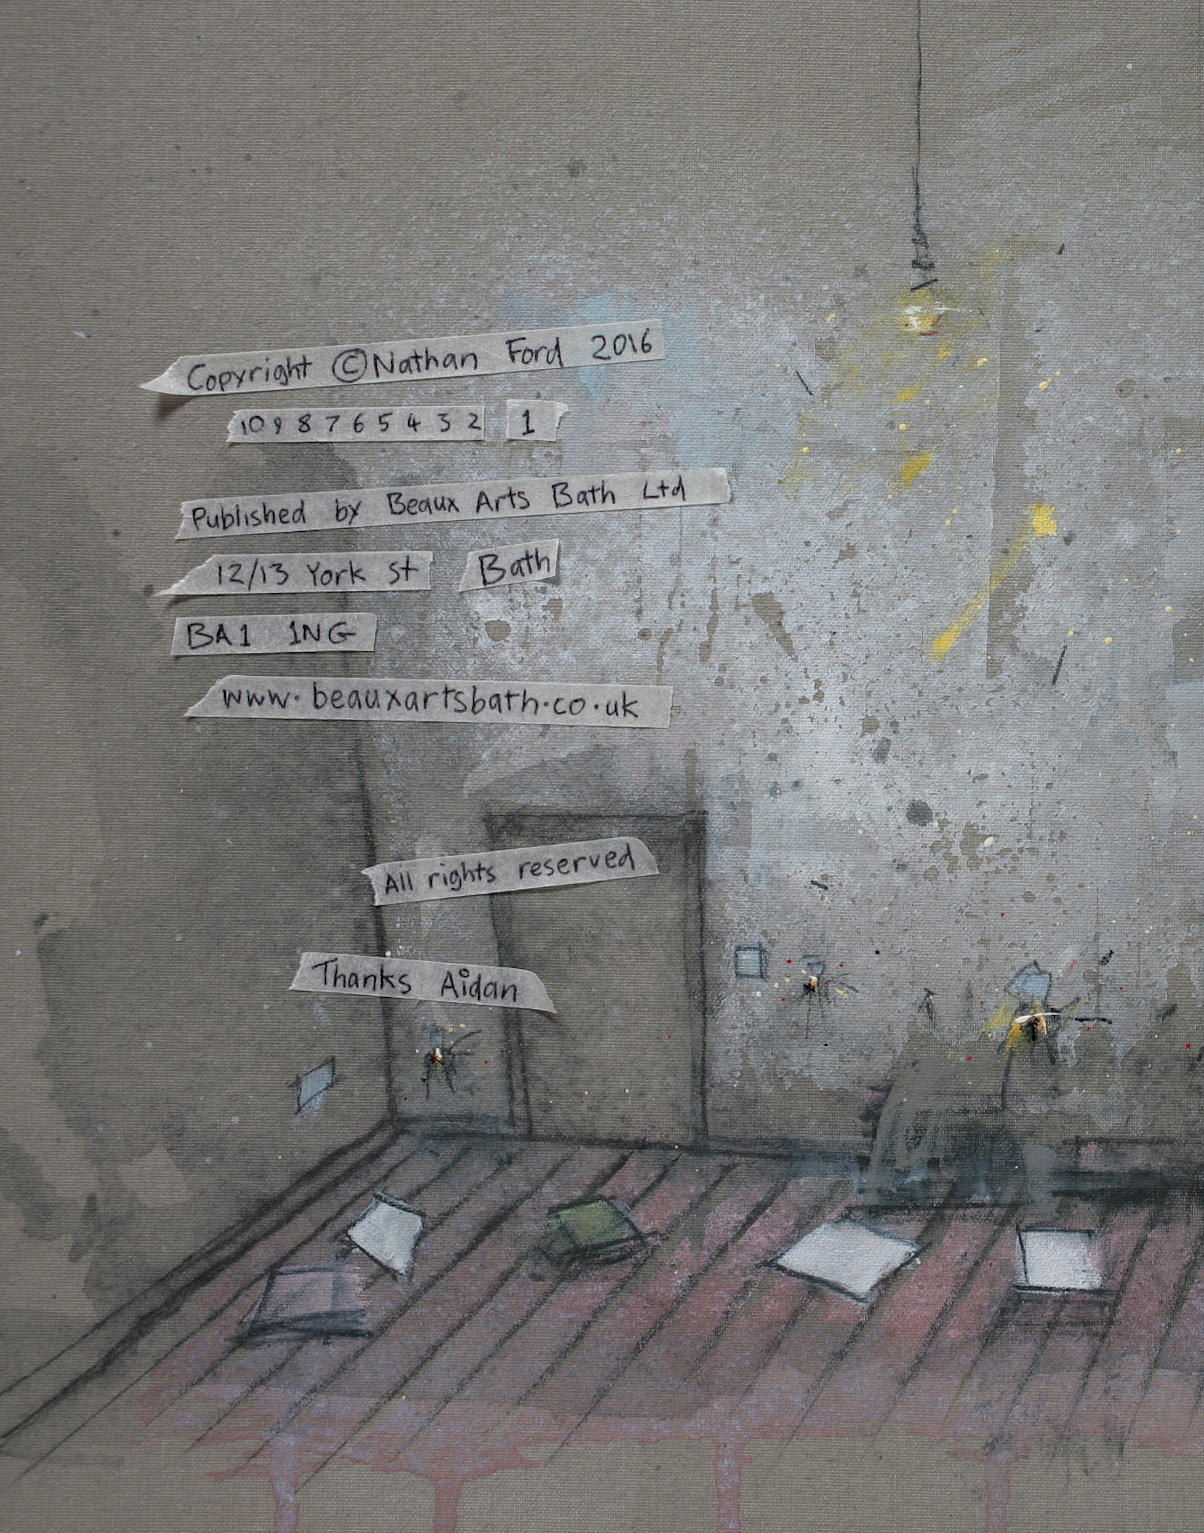 Copyright ©Nathan Ford 2016
10 9 8 7 6 5 4 3 2 1
Published by Beaux Arts Bath Ltd
12/13 York St Bath
BA1 1NG
www.beauxartsbath.co.uk
All rights reserved
Thanks Aidan